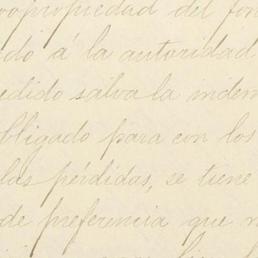 propiedad del fon
do á la autoridad
edido salva la indem
bligado para con los
las pérdidas, se tiene
de preferencia que n